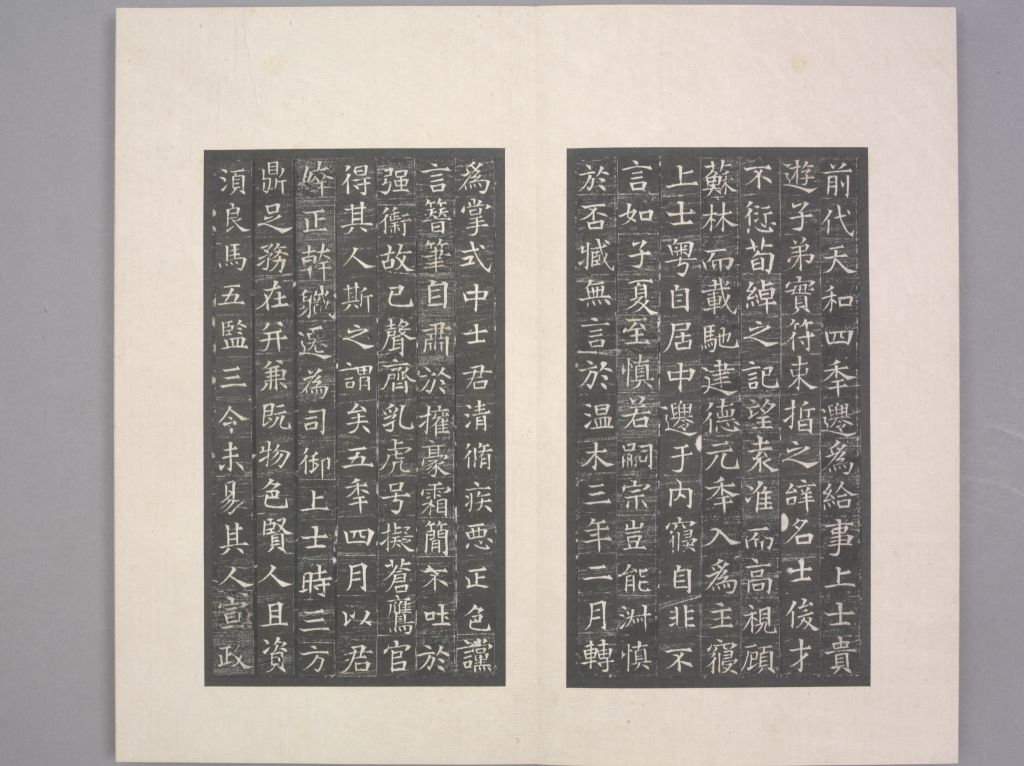 前代天和四秊遷爲給事上士貴
遊子弟實符束晢之辝名士俊才
不愆荀綽之記望袁准而高視顧
蘇林而載馳建德元秊入爲主寢
上士粤自居中遷于內寢自非不
言如子夏至慎若嗣宗豈能淋慎
於否臧無言於温木三年二月轉
爲掌式中士君清脩疾惡正色讜
言簪筆自肅於擁豪霜簡不吐於
强衞故已聲齊乳虎号擬蒼鷹官
得其人斯之謂矣五秊四月以君
正幹軄遷爲司御上士時三方
鼎足務在并兼既物色賢人且资
湏良馬五監三令未易其人宣政